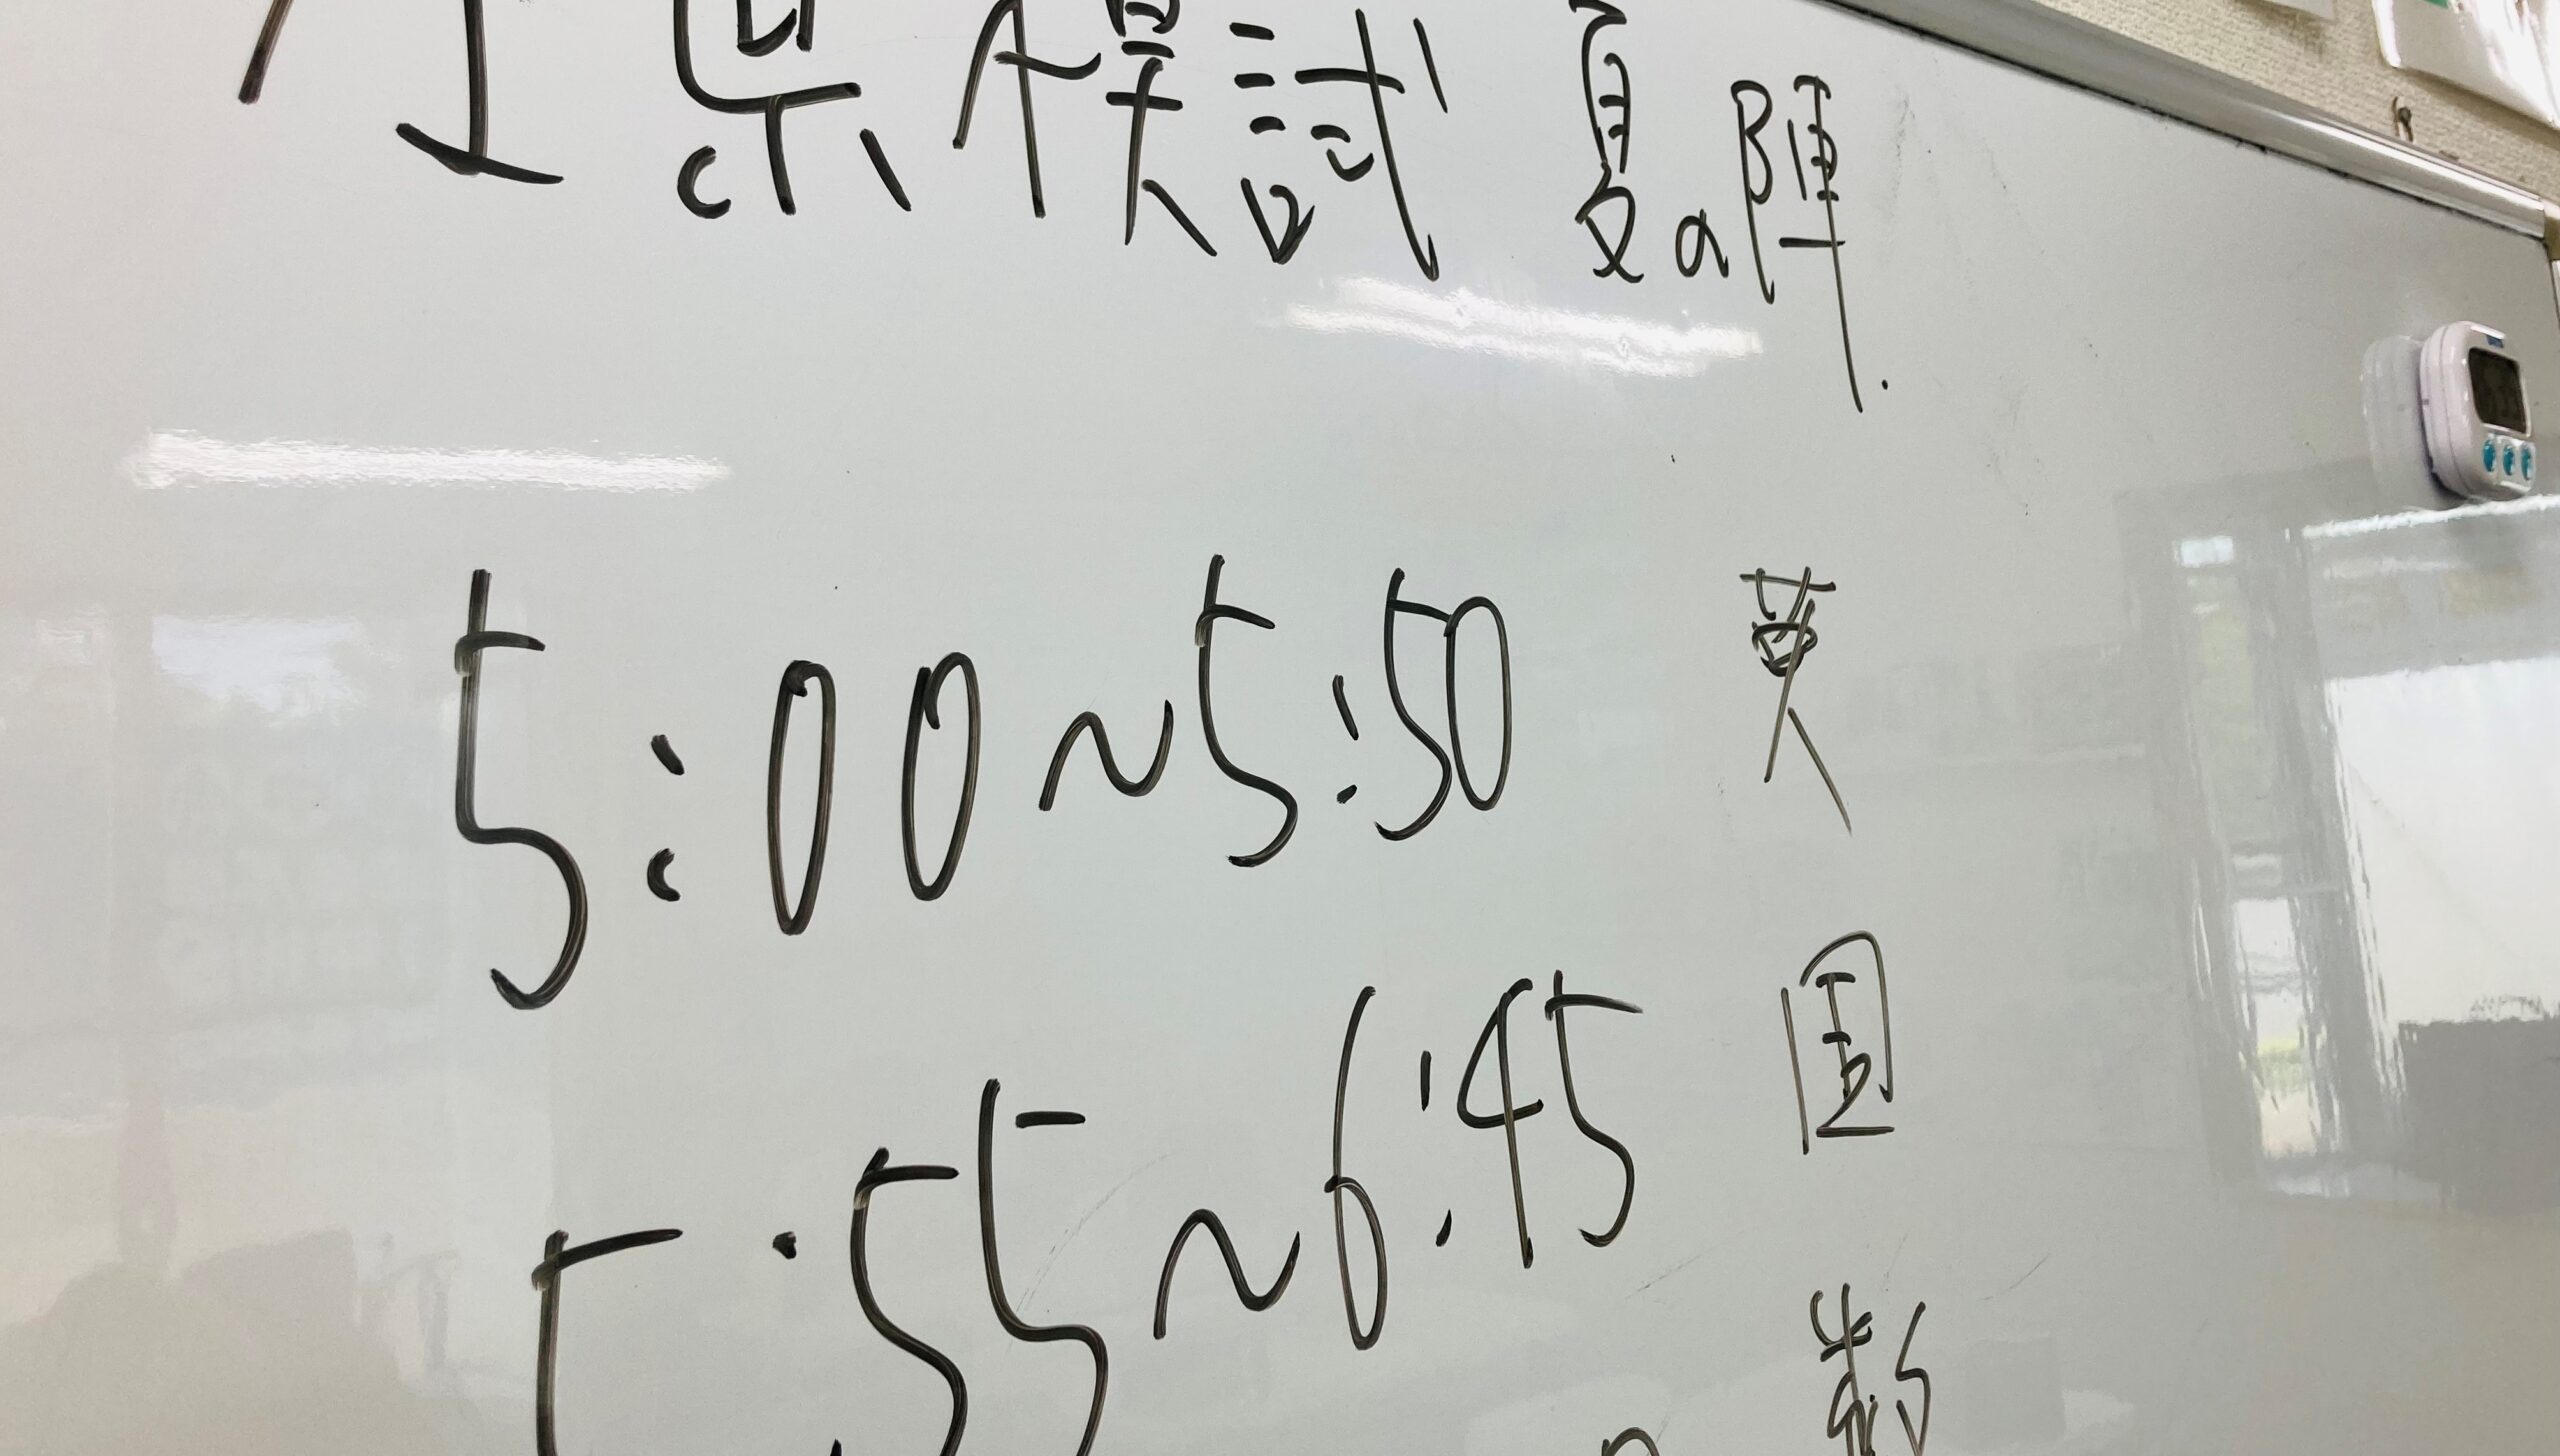 県模試 夏の陣.
5:00~5:50 英
5:55~6:45 国
数